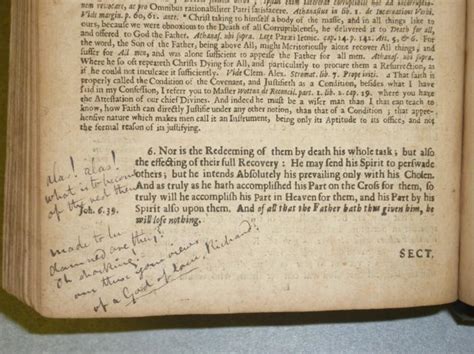 Vide m. p. 60, 61. ante. * Christ taking to himself a body of the mass, and in all things like to
ours, because we were obnoxious to the Death of all Corruptibleness, he delivered it to Death for all,
and offered to God the Father. Athanas. ubi supra.
word, the Son of the Father, being above all, might Meritoriously alone recover All things; and
suffer for All men, and was alone sufficient to appease the Father for all men. Athanas. ubi supra.
Where he so oft repeateth Christs Dying for All, and particularly to procure them a Resurrection as
if he could not inculcate it sufficiently. Vide Clem. Alex. Stromat. lib. 7. a That faith is
properly called the Condition of the Covenant, and Justifieth as a Condition, besides what I have
said in my Confession, I refer you to Master Wotton de Reconcil. part. 1. lib. 2. cap. 19. where you have
the Attestation of our chief Divines. And indeed he must be a wiser man than I that can teach to
know, how Faith can directly Justifie under any other notion, than that of a Condition; that appre-
hensive nature which makes men call it an Instrument, being only its Aptitude to its office, and not
the formal reason of its justifying.
6. Nor is the Redeeming of them by death his whole task; but also
the effecting of their full Recovery: He may send his Spirit to perswade
others; but he intends Absolutely his prevailing only with his Chosen.
And as truly as he hath accomplished his Part on the Cross for them, so
truly will he accomplish his Part in Heaven for them, and his Part by his
Spirit also upon them. And of all that the Father hath thus given him, he
will lose nothing.
alas! alas!
what is to become
of the rest then
Joh. 6. 39.
made to be
damned are they?
Oh shocking!
these your views
of a God of love, Richard?
SECT.